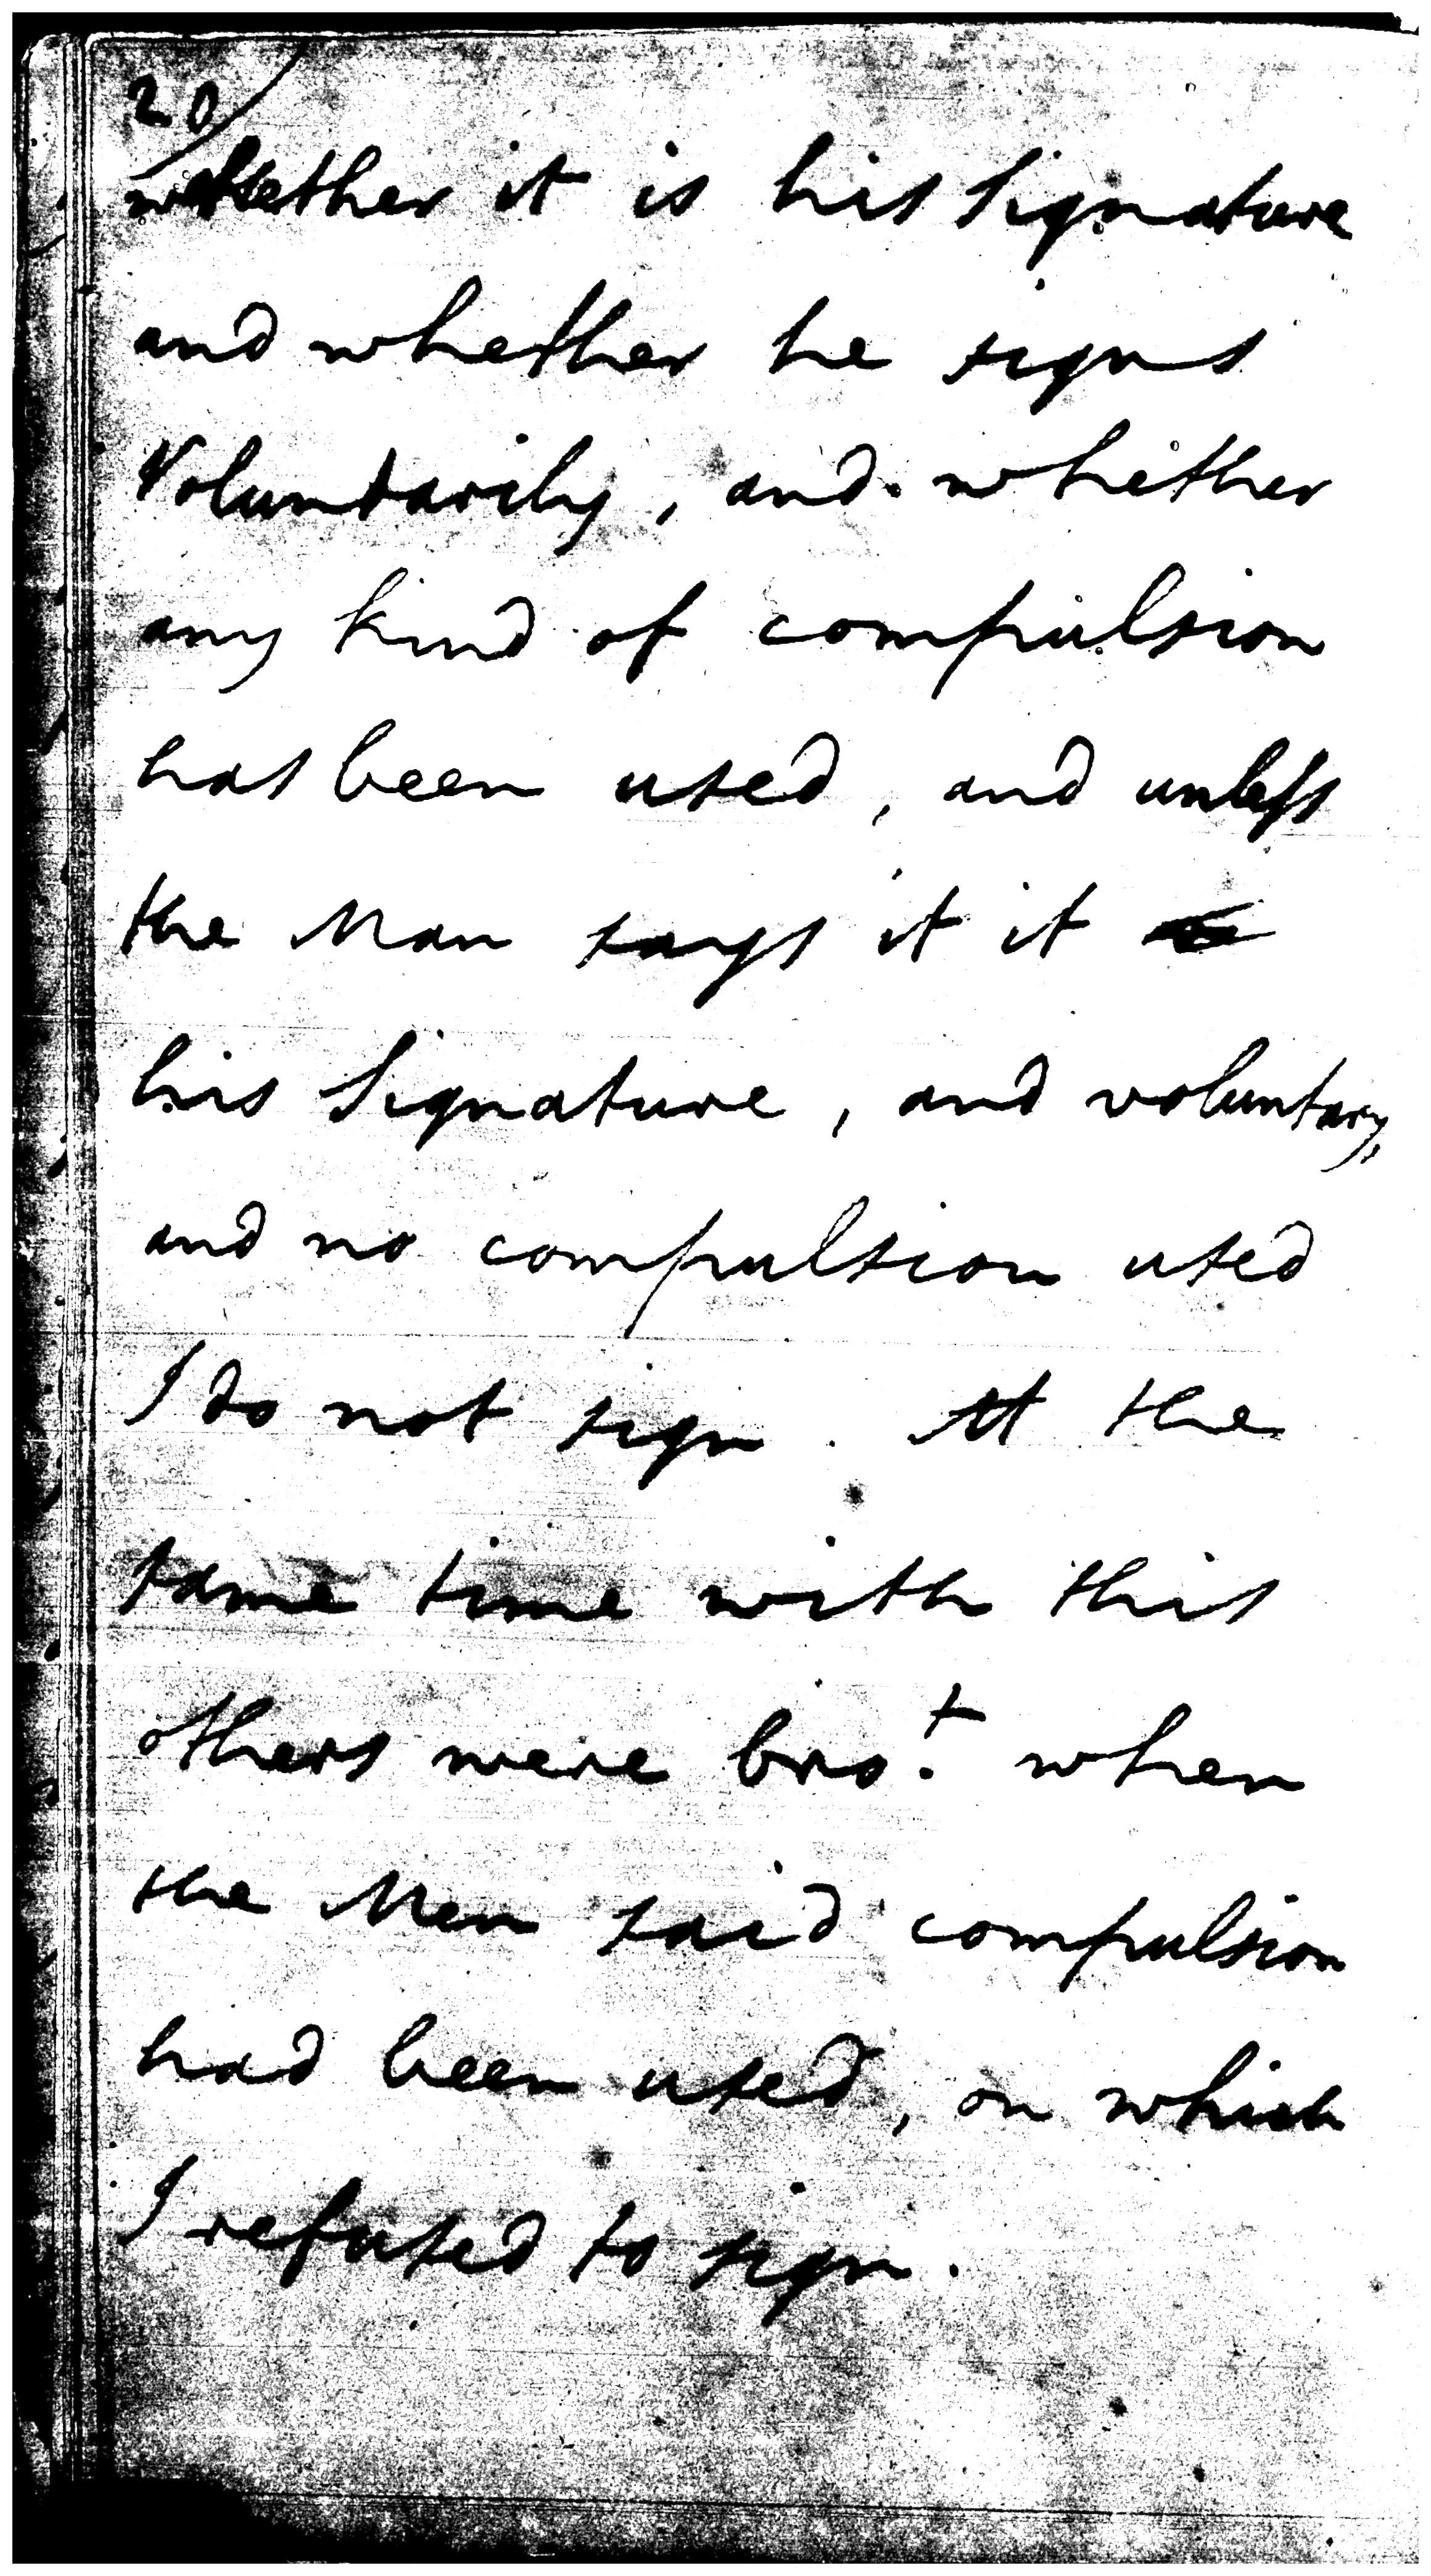 20
whether it is his Signature
and whether he signs
Voluntarily, and whether
any kind of compulsion
has been used, and unless
the Man says it it
his Signature, and voluntary,
and no compulsion used
I do not sign. At the
same time with this
others were bro.t when
the Men said compulsion
had been used, on which
I refused to sign.